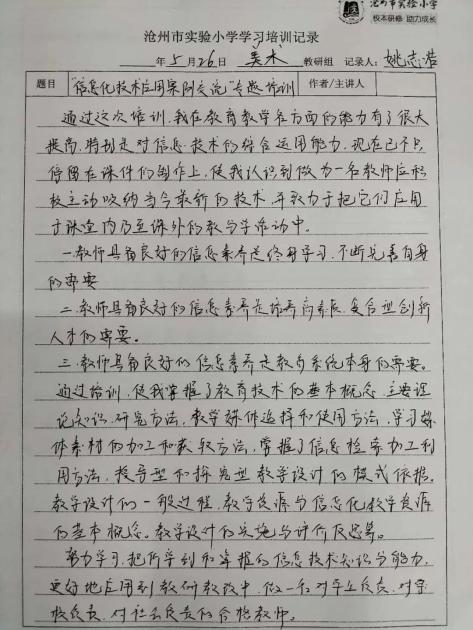 沧州市实验小学
校本研修 助力成长
沧州市实验小学学习培训记录
年 5 月 26 日 美术 教研组 记录人: 姚志浩
题目 “信息化技术应用案例交流”专题培训 作者/主讲人
通过这次培训,我在教育教学各方面的能力有了很大
提高,特别是对信息技术的综合运用能力,现在已不只
停留在课件们制作上,使我认识到做为一名教师应积
极主动吸纳当今最新的技术,并致力于把它们应用
于课堂内乃至课外的教与学活动中。
一.教师具备良好的信息素养是终身学习,不断完善自身
的需要
二.教师具备良好的信息素养是培养高素质,复合型创新
人才的需要。
三.教师具备良好的信息素养是教育系统本身的需要。
通过培训,使我掌握了教育技术的基本概念,主要理
论知识,研究方法,教学媒体选择和使用方法,学习媒
体素材的加工和获取方法,掌握了信息检索加工利
用方法,授导型和探究型教学设计的模式依据,
教学设计的一般过程,教学资源与信息化教学资源
的基本概念。教学设计的实施与评价及思算。
努力学习,把所学到和掌握的信息技术知识与能力,
更好地应用到教研教改中,做一名对学生负责,对学
校负责,对社会负责的合格教师。